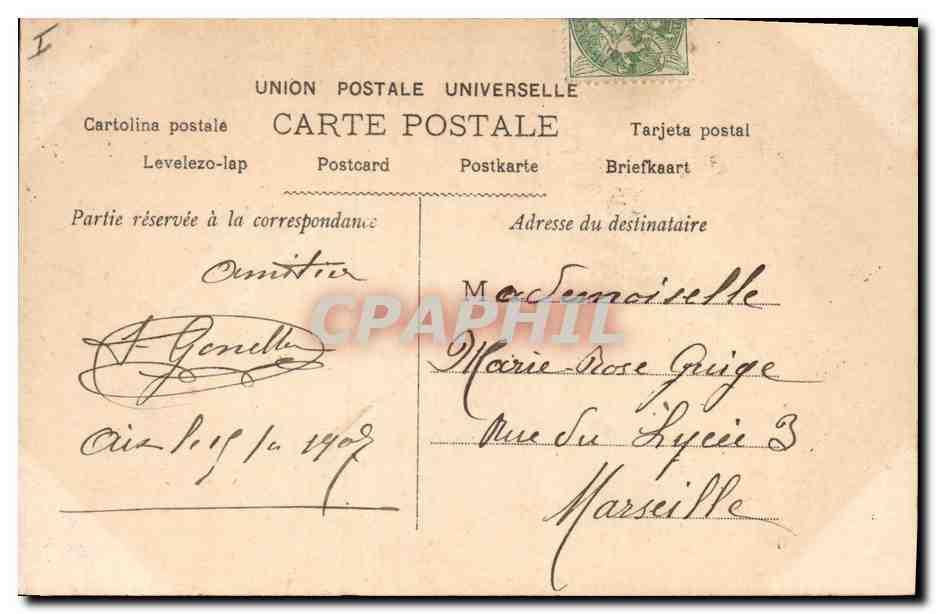 I
UNION POSTALE UNIVERSELLE
Cartolina postale CARTE POSTALE Tarjeta postal
Levelezo-lap Postcard Postkarte Briefkaart
Partie réservée à la correspondance
amitiés
Gonella
Aix le 1907
Adresse du destinataire
Mademoiselle
Marie-Rose Guige
Rue du Lycée 3
Marseille
CPAPHIL